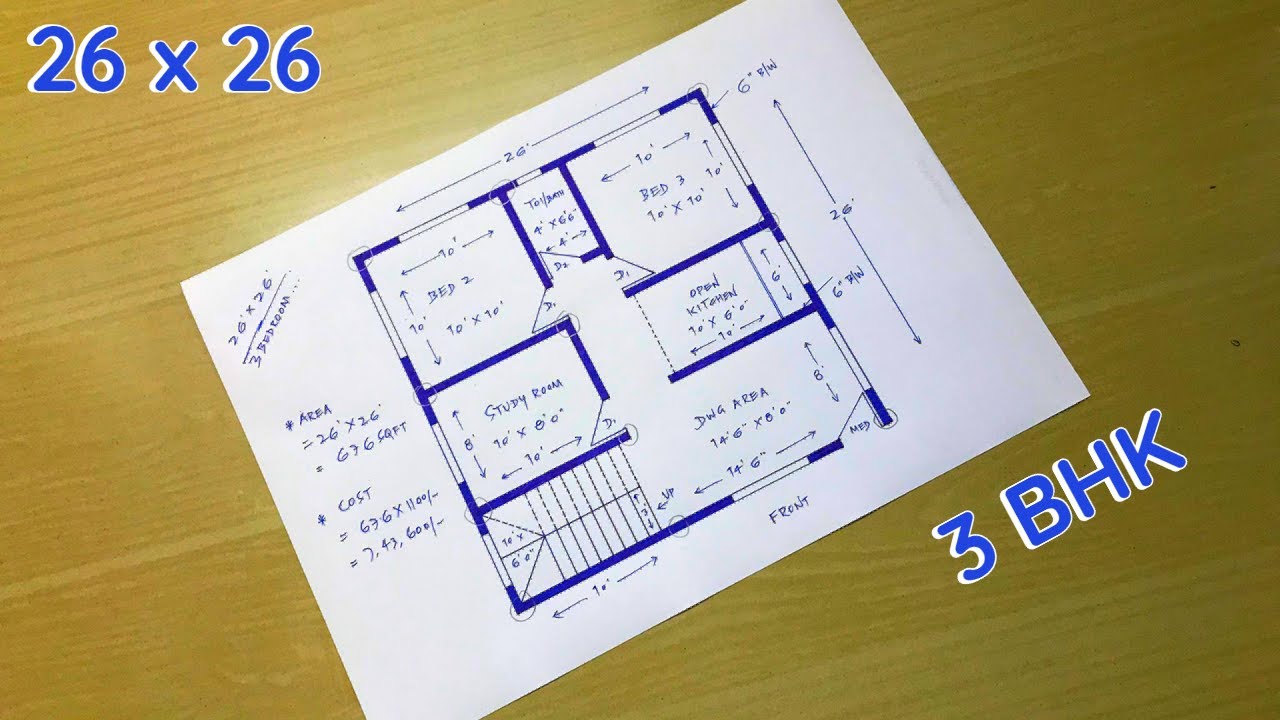 26 x 26
26'
6" B/W
10'
BED 3
10' X 10'
10'
26'
TOI/BATH
4' X 6'6"
4'
D2
D1
10'
BED 2
10' X 10'
10'
D1
OPEN
KITCHEN
10' X 6'0"
10'
6'
6" B/W
26' X 26'
3 BEDROOM...
STUDY ROOM
10' X 8'0"
8'
10'
D1
DWG AREA
14'6" X 8'0"
8'
14'6"
MED
* AREA
= 26' X 26'
= 676 SQFT
* COST
= 676 X 1100/-
= 7,43,600/-
10' X
6'0"
3'
UP
10'
FRONT
3 BHK